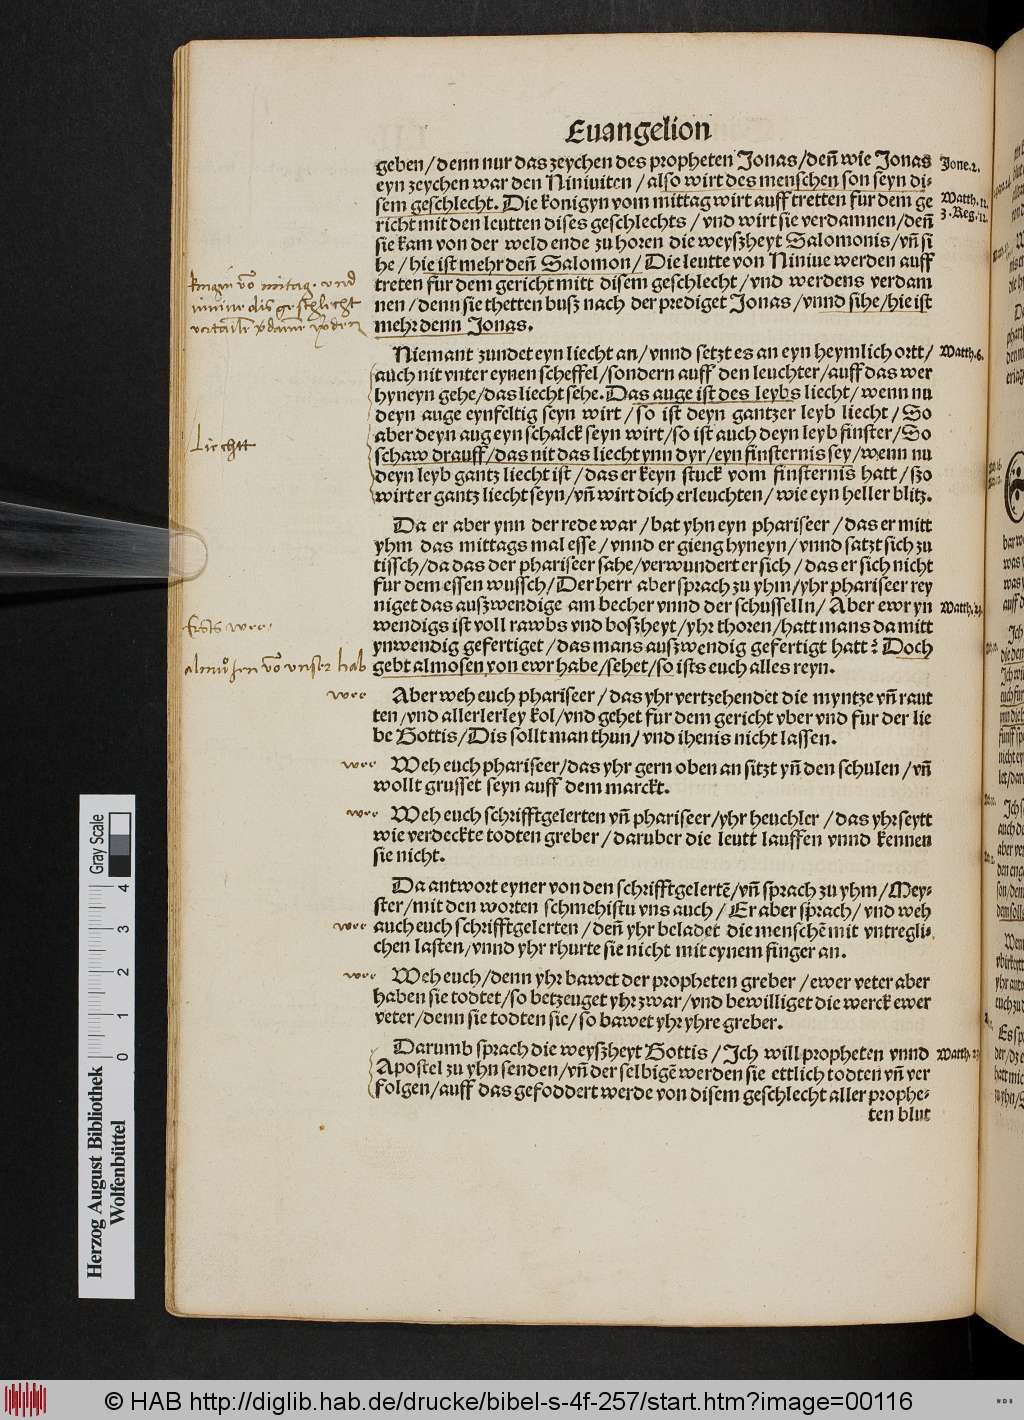 Euangelion
geben/denn nur das zeychen des propheten Jonas/deñ wie Jonas
Jone.2.
eyn zeychen war den Niniuiten/also wirt des menschen son seyn di-
sem geschlecht. Die konigyn vom mittag wirt auff tretten fur dem ge
Matth.12.
richt mit den leutten dises geschlechts/vnd wirt sie verdamnen/deñ
3.Reg.12.
sie kam von der weld ende zu horen die weyszheyt Salomonis/vñ si
he/hie ist mehr deñ Salomon/Die leutte von Niniue werden auff
treten fur dem gericht mitt disem geschlecht/vnd werdens verdam
nen/denn sie thetten busz nach der prediget Jonas/vnnd sihe/hie ist
mehr denn Jonas.
Niemant zundet eyn liecht an/vnnd setzt es an eyn heymlich ortt/
Matth.6.
auch nit vnter eynen scheffel/sondern auff den leuchter/auff das wer
hyneyn gehe/das liecht sehe. Das auge ist des leybs liecht/wenn nu
deyn auge eynfeltig seyn wirt/so ist deyn gantzer leyb liecht/So
aber deyn aug eyn schalck seyn wirt/so ist auch deyn leyb finster/So
Liechtt
schaw drauff/das nit das liecht ynn dyr/eyn finsternis sey/wenn nu
deyn leyb gantz liecht ist/das er keyn stuck vom finsternis hatt/szo
wirt er gantz liecht seyn/vñ wirt dich erleuchten/wie eyn heller blitz.
Da er aber ynn der rede war/bat yhn eyn phariseer/das er mitt
yhm das mittags mal esse/vnnd er gieng hyneyn/vnnd satzt sich zu
tissch/da das der phariseer sahe/verwundert er sich/das er sich nicht
fur dem essen wussch/Der herr aber sprach zu yhm/yhr phariseer rey
niget das auszwendige am becher vnnd der schusselln/Aber ewr yn
Matth.23.
wendigs ist voll rawbs vnd boszheyt/yhr thoren/hatt mans da mitt
Ersts wee
ynwendig gefertiget/das mans auszwendig gefertigt hatt? Doch
gebt almosen von ewr habe/sehet/so ists euch alles reyn.
almusen võ vnser hab
wee
Aber weh euch phariseer/das yhr vertzehendet die myntze vñ raut
ten/vnd allerlerley kol/vnd gehet fur dem gericht vber vnd fur der lie
be Gottis/Dis sollt man thun/vnd ihenis nicht lassen.
wee
Weh euch phariseer/das yhr gern oben an sitzt yñ den schulen/vñ
wollt grusset seyn auff dem marckt.
wee
Weh euch schrifftgelerten vñ phariseer/yhr heuchler/das yhr seytt
wie verdeckte todten greber/daruber die leutt lauffen vnnd kennen
sie nicht.
Da antwort eyner von den schrifftgelertẽ/vñ sprach zu yhm/Mey-
ster/mit den worten schmehistu vns auch/Er aber sprach/vnd weh
wee
auch euch schrifftgelerten/deñ yhr beladet die menschẽ mit vntregli-
chen lasten/vnnd yhr rhurte sie nicht mit eynem finger an.
wee
Weh euch/denn yhr bawet der propheten greber/ewer veter aber
haben sie todtet/so betzeuget yhr zwar/vnd bewilliget die werck ewer
veter/denn sie todten sie/so bawet yhr yhre greber.
Darumb sprach die weyszheyt Gottis/Jch will propheten vnnd
Matth.23.
Apostel zu yhn senden/vñ der selbigẽ werden sie ettlich todten vñ ver
folgen/auff das gefoddert werde von disem geschlecht aller prophe-
ten blut
Gray Scale
0 1 2 3 4
Herzog August Bibliothek
Wolfenbüttel
© HAB http://diglib.hab.de/drucke/bibel-s-4f-257/start.htm?image=00116